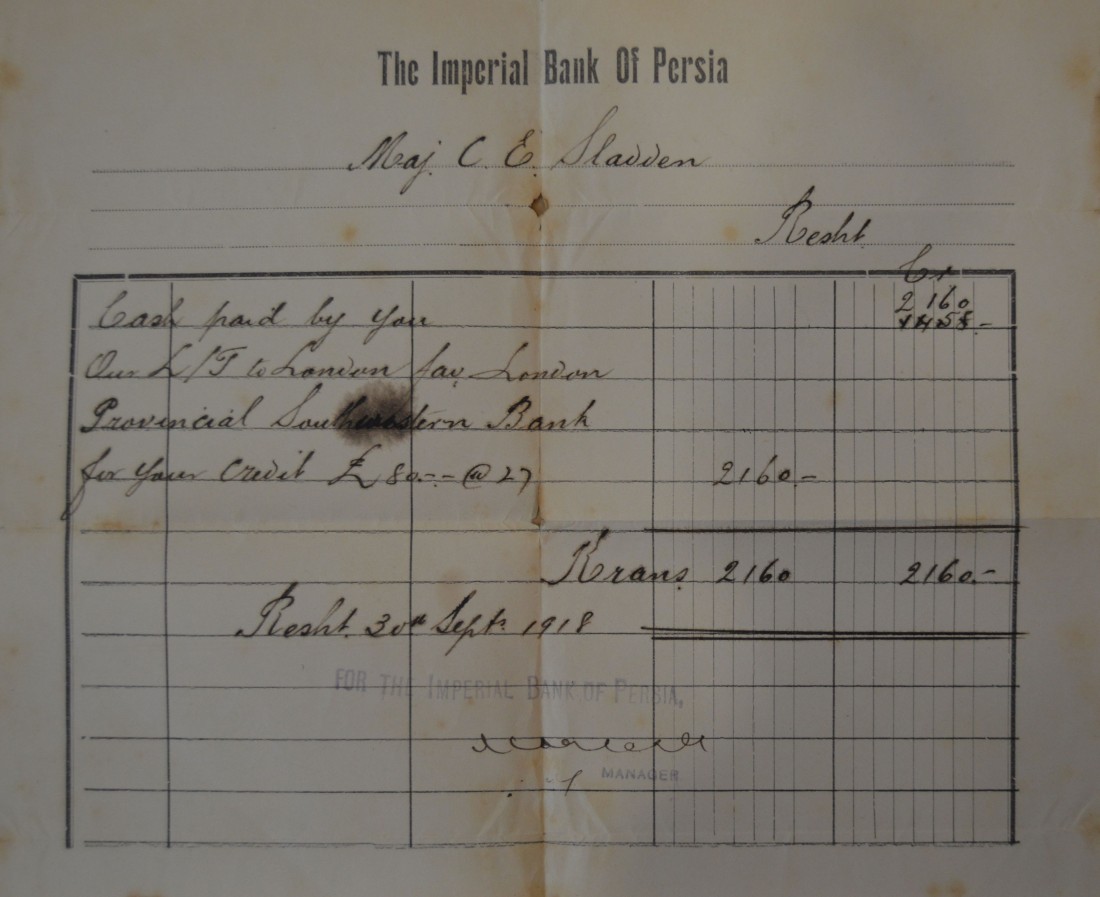 The Imperial Bank Of Persia
Maj. C. E. Sladden
Resht.
Cr
Cash paid by you 2160
Our L/T to London fav. London
Provincial Southwestern Bank
for your credit £80.-.- @ 27 2160.-
Krans 2160 2160.-
Resht. 30th Sept. 1918
FOR THE IMPERIAL BANK OF PERSIA,
MANAGER